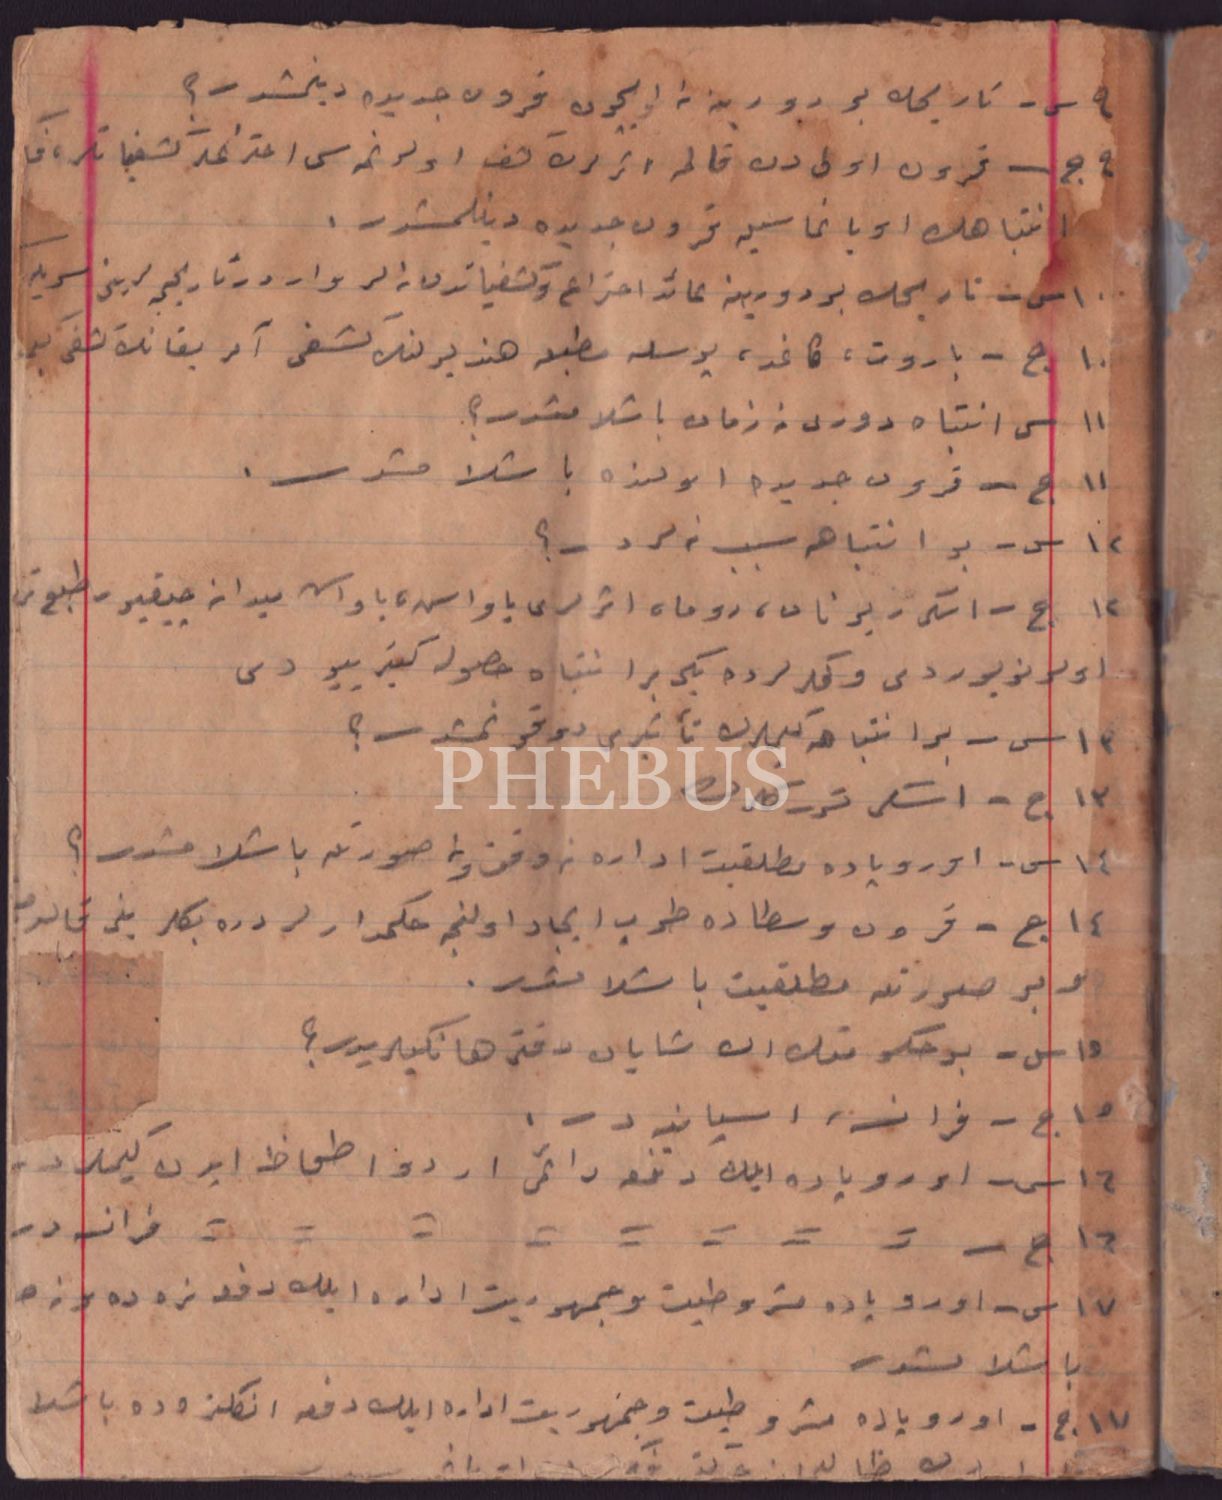 ٩ س- تاریخك بو دورینه نه ایچون قرون جدیده دینمشدر؟
٩ ج- قرون اولی دن قالمه اثرلرك كشف اولونمه سی اختراعلر كشفیاتلر،
انتباهك اویانماسیله قرون جدیده دینلمشدر.
١٠ س- تاریخك بو دورینه عائد اختراع وكشفیاتدن نه لر واردر تاریخچه لرینی سویله
١٠ ج- باروت، كاغد، پوسله مطبعه هند یولنك كشفی آمریقانك كشفی
١١ س انتباه دوری نه زمان باشلامشدر؟
١١ ج- قرون جدیده اولنده باشلامشدر.
١٢ س- بو انتباهه سبب نه لردر؟
١٢ ج- اسكی یونان، روما، اثرلری یاواش، یاواش میدانه چیقیور طبع
اولونیوردی وفكرلرده یكی بر انتباه حصوله كتیرییوردی
١٣ س- بو انتباهه كیملرك تأثیری دوقونمشدر؟
PHEBUS
١٣ ج- اسكی توركلرك
١٤ س- اوروپاده مطلقیت اداره نه وقت ونه صورتله باشلامشدر؟
١٤ ج- قرون وسطاده طوپ ایجاد اولنجه حكمدارلر دره بكلرینی
و بو صورتله مطلقیت باشلامشدر.
١٥ س- بو حكومتك اك شایان دقتی هانكیلریدر؟
١٥ ج- فرانسه، اسپانیه در.
١٦ س- اوروپاده ایلك دفعه دائمی اردو احفاظ ایدن كیملردر
١٦ ج- = = = = = = = = فرانسه در
١٧ س- اوروپاده مشروطیت وجمهوریت اداره ایلك دفعه نره ده
باشلامشدر
١٧ ج- اوروپاده مشروطیت وجمهوریت اداره ایلك دفعه انكلتره ده باشلا